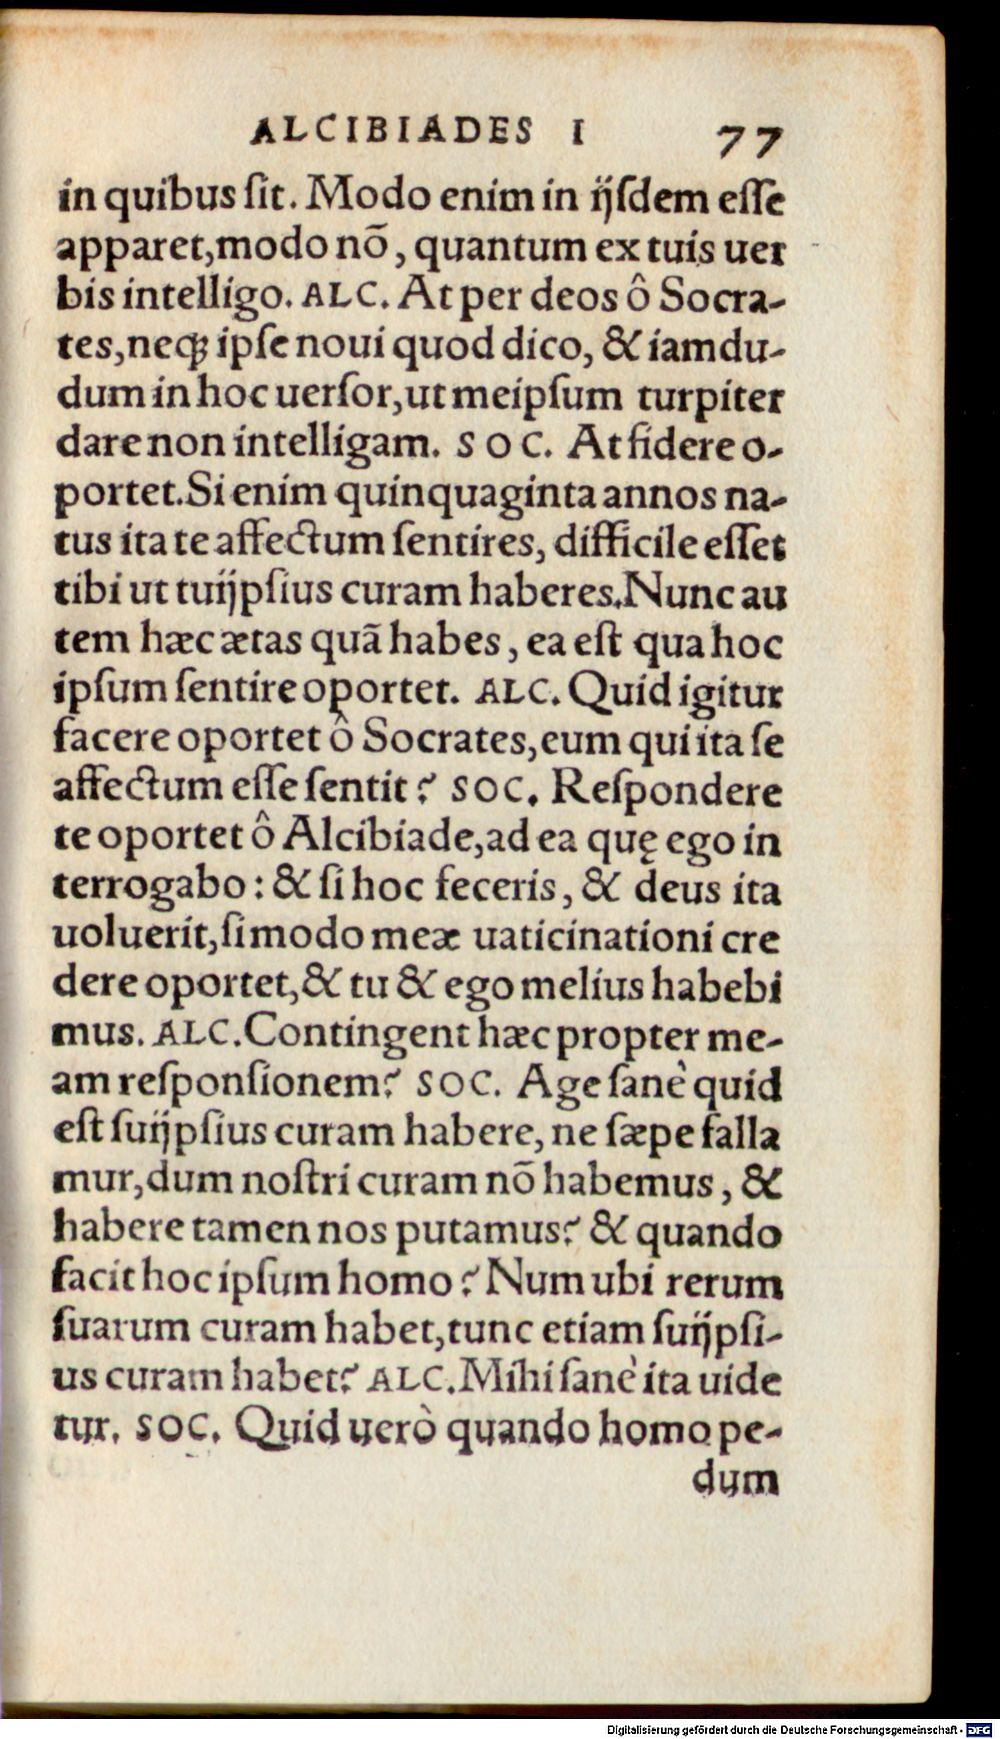 ALCIBIADES I 77
in quibus ſit. Modo enim in ijſdem eſſe
apparet, modo nõ, quantum ex tuis uer
bis intelligo. ALC. At per deos ô Socra-
tes, neqꝫ ipſe noui quod dico, & iamdu-
dum in hoc uerſor, ut meipſum turpiter
dare non intelligam. SOC. At fidere o-
portet. Si enim quinquaginta annos na-
tus ita te affectum ſentires, difficile eſſet
tibi ut tuijpſius curam haberes. Nunc au
tem hæc ætas quã habes, ea eſt qua hoc
ipſum ſentire oportet. ALC. Quid igitur
facere oportet ô Socrates, eum qui ita ſe
affectum eſſe ſentit? SOC. Reſpondere
te oportet ô Alcibiade, ad ea quę ego in
terrogabo: & ſi hoc feceris, & deus ita
uoluerit, ſi modo meæ uaticinationi cre
dere oportet, & tu & ego melius habebi
mus. ALC. Contingent hæc propter me-
am reſponſionem? SOC. Age ſanè quid
eſt ſuijpſius curam habere, ne ſæpe falla
mur, dum noſtri curam nõ habemus, &
habere tamen nos putamus? & quando
facit hoc ipſum homo? Num ubi rerum
ſuarum curam habet, tunc etiam ſuijpſi-
us curam habet? ALC. Mihi ſanè ita uide
tur. SOC. Quid uerò quando homo pe-
dum
Digitalisierung gefördert durch die Deutsche Forschungsgemeinschaft - DFG